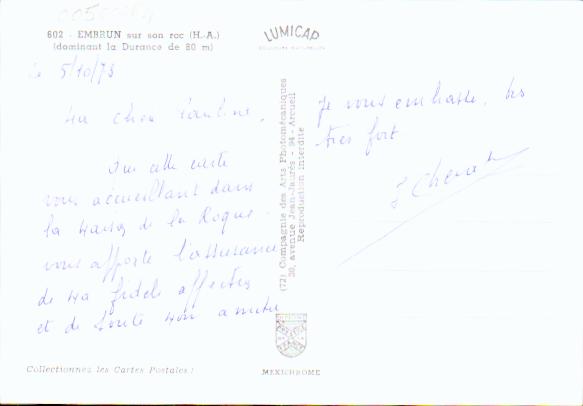 602 - EMBRUN sur son roc (H.-A.)
(dominant la Durance de 80 m)
LUMICAP
Le 5/10/73
Ma chère Pauline,
Que cette carte
vous accueillant dans
la maison de la Roque
vous apporte l'assurance
de ma fidèle affection
et de toute mon amitié
Je vous embrasse, très
très fort
(72) Compagnie des Arts Photomécaniques
30, avenue Jean-Jaurès - 94 - Arcueil
Reproduction interdite
Collectionnez les Cartes Postales !
MEXICHROME